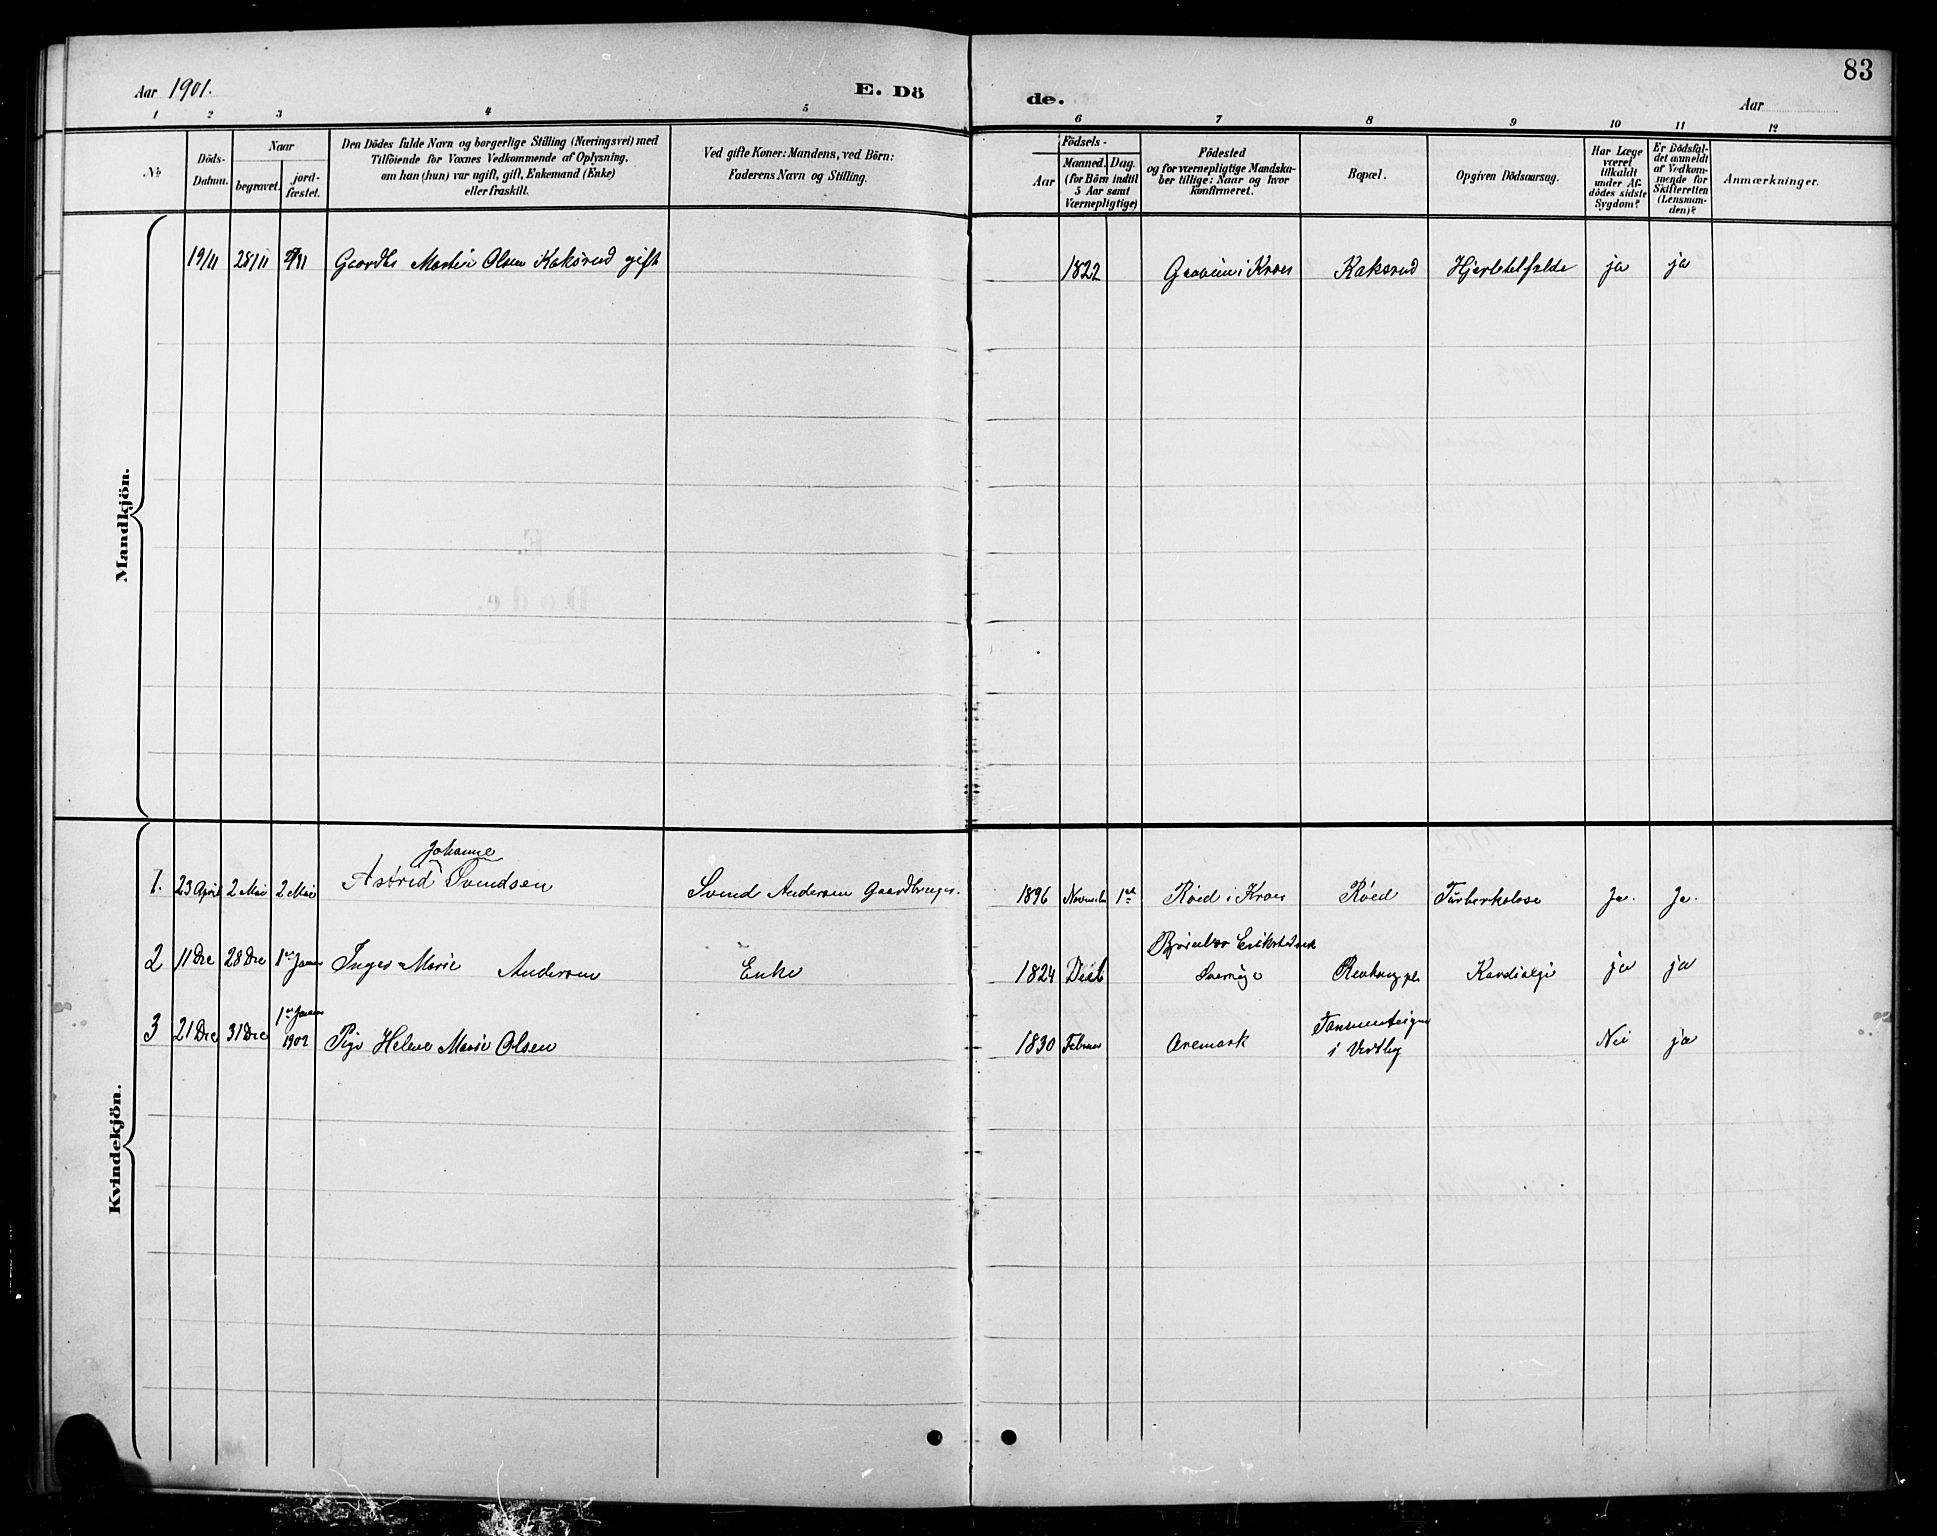 Aar 1901.
E. Dö
de.
Aar
83
1 2 3 4 5 6 7 8 9 10 11 12
No
Döds-
Datum.
Naar
begravet.
jord-
fæstet.
Den Dödes fulde Navn og borgerlige Stilling (Næringsvei) med
Tilföiende for Voxnes Vedkommende af Oplysning,
om han (hun) var ugift, gift, Enkemand (Enke)
eller fraskilt.
Ved gifte Koner: Mandens, ved Börn:
Faderens Navn og Stilling.
Födsels-
Aar
Maaned. Dag.
(for Börn indtil
5 Aar samt
Værnepligtige)
Födested
og for værnepligtige Mandska-
ber tillige: Naar og hvor
konfirmeret.
Bopæl.
Opgiven Dödsaarsag.
Har Læge
været
tilkaldt
under Af-
dödes sidste
Sygdom?
Er Dödsfal-
det anmeldt
af Vedkom-
mende for
Skifteretten
(Lensman-
den)?
Anmærkninger.
Mandkjön.
19/11 28/11 Martin Olsen Kaksrud gift 1822 i Kroer Kaksrud ja ja
Kvindekjön.
Johanne
1. 23 April 2 Mai 2 Mai Astrid Svendsen Svend Andersen Gaardbruger. 1896 1ste Röed i Kroer Röed Turberkolose Ja. Ja.
2 11 Dec 28 Dec Inger Marie Andersen Enke 1824 ja ja
3 21 Dec 31 Dec 1902 Pige Helene Marie Olsen 1830 Februar Aremark i Vestby Nei ja